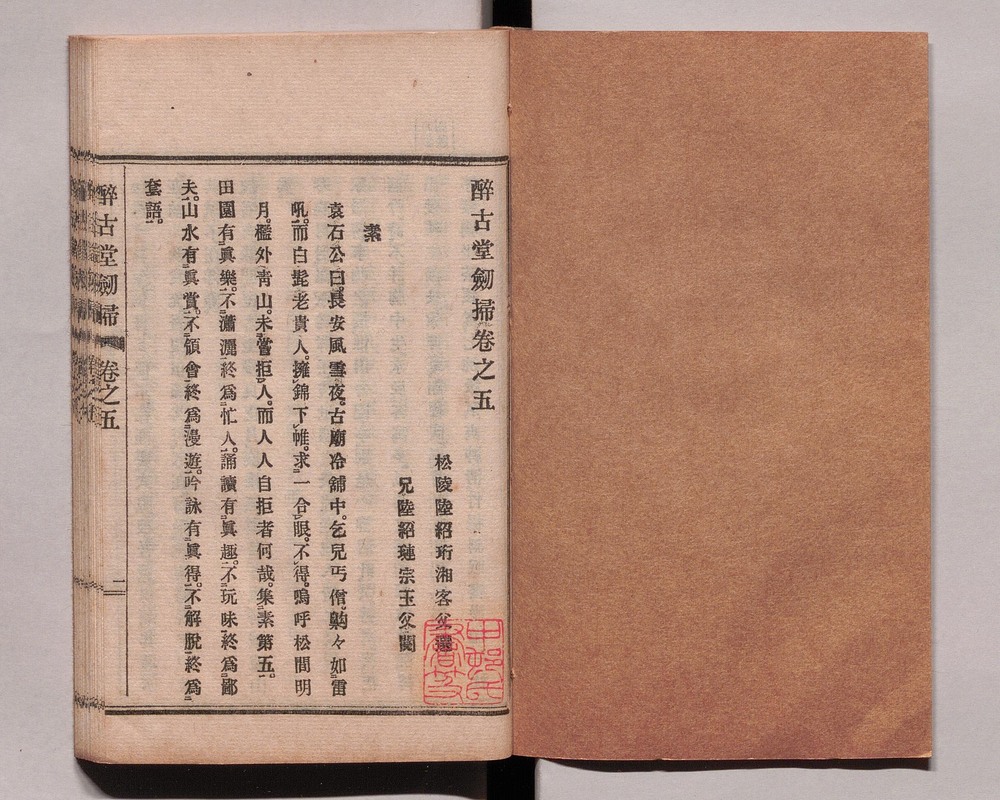 醉古堂劒掃卷之五
松陵陸紹珩湘客父選
兄陸紹璉宗玉父閱
素
袁石公曰。長安風雪夜。古廟冷舖中。乞兒丐僧。齁々如雷
吼。而白髭老貴人。擁錦下帷。求一合眼。不得。嗚呼松間明
月。檻外青山。未嘗拒人。而人人自拒者何哉。集素第五。
田園有眞樂。不瀟灑終爲忙人。誦讀有眞趣。不玩味終爲鄙
夫。山水有眞賞。不領會終爲漫遊。吟詠有眞得。不解脫終爲
套語。
醉古堂劒掃 卷之五 一